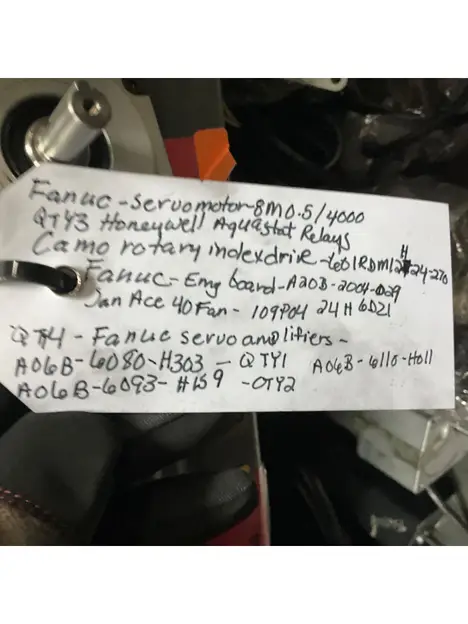 Fanuc-Servomotor-8M0.5/4000
QTY3 Honeywell Aquastat Relays
Camo rotary indexdrie-601RDM12H24-270
Fanuc-Emg board-A20B-2004-029
San Ace 40 Fan - 109P04 24H6D21
QTY4 - Fanuc servo amplifiers-
A06B-6080-H303 - QTY1 A06B-6110-H011
A06B-6093-H159 -QTY2